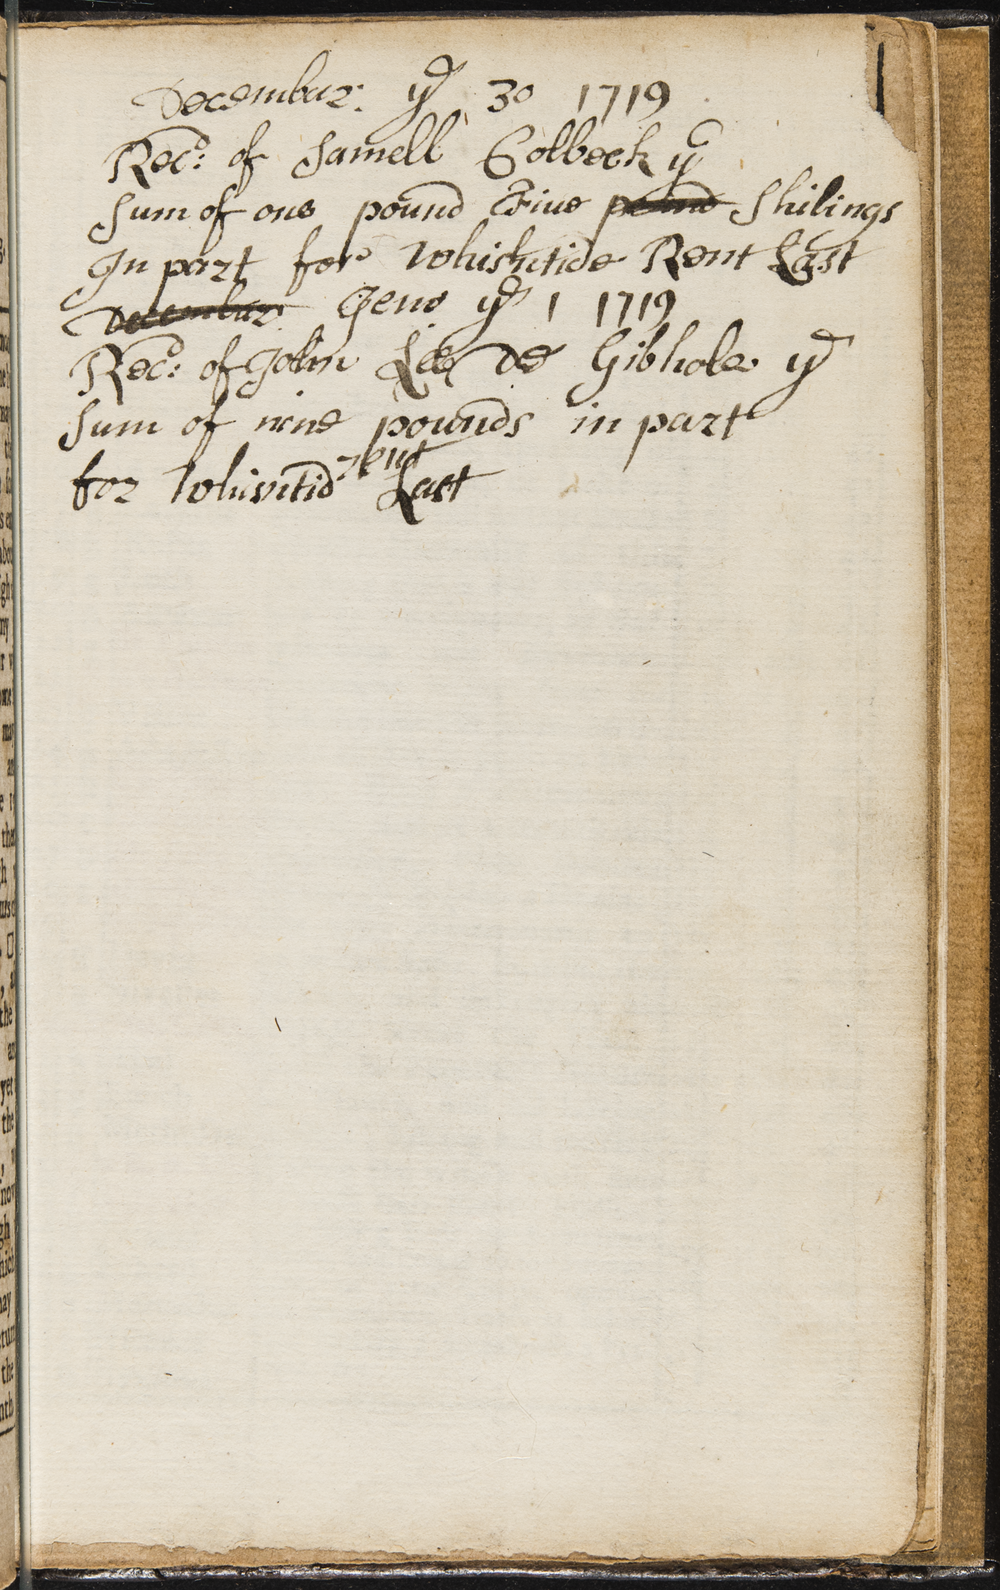 Decembar: ye 30 1719
Recd: of Samell Colbeck ye
Sum of one pound Fiue pound Shilings
In part for Whishtide Rent Last
Decembar Jeno ye 1 1719
Recd: of John Lee de Gibhole ye
Sum of nine pounds in part
for Whisntid rent Last